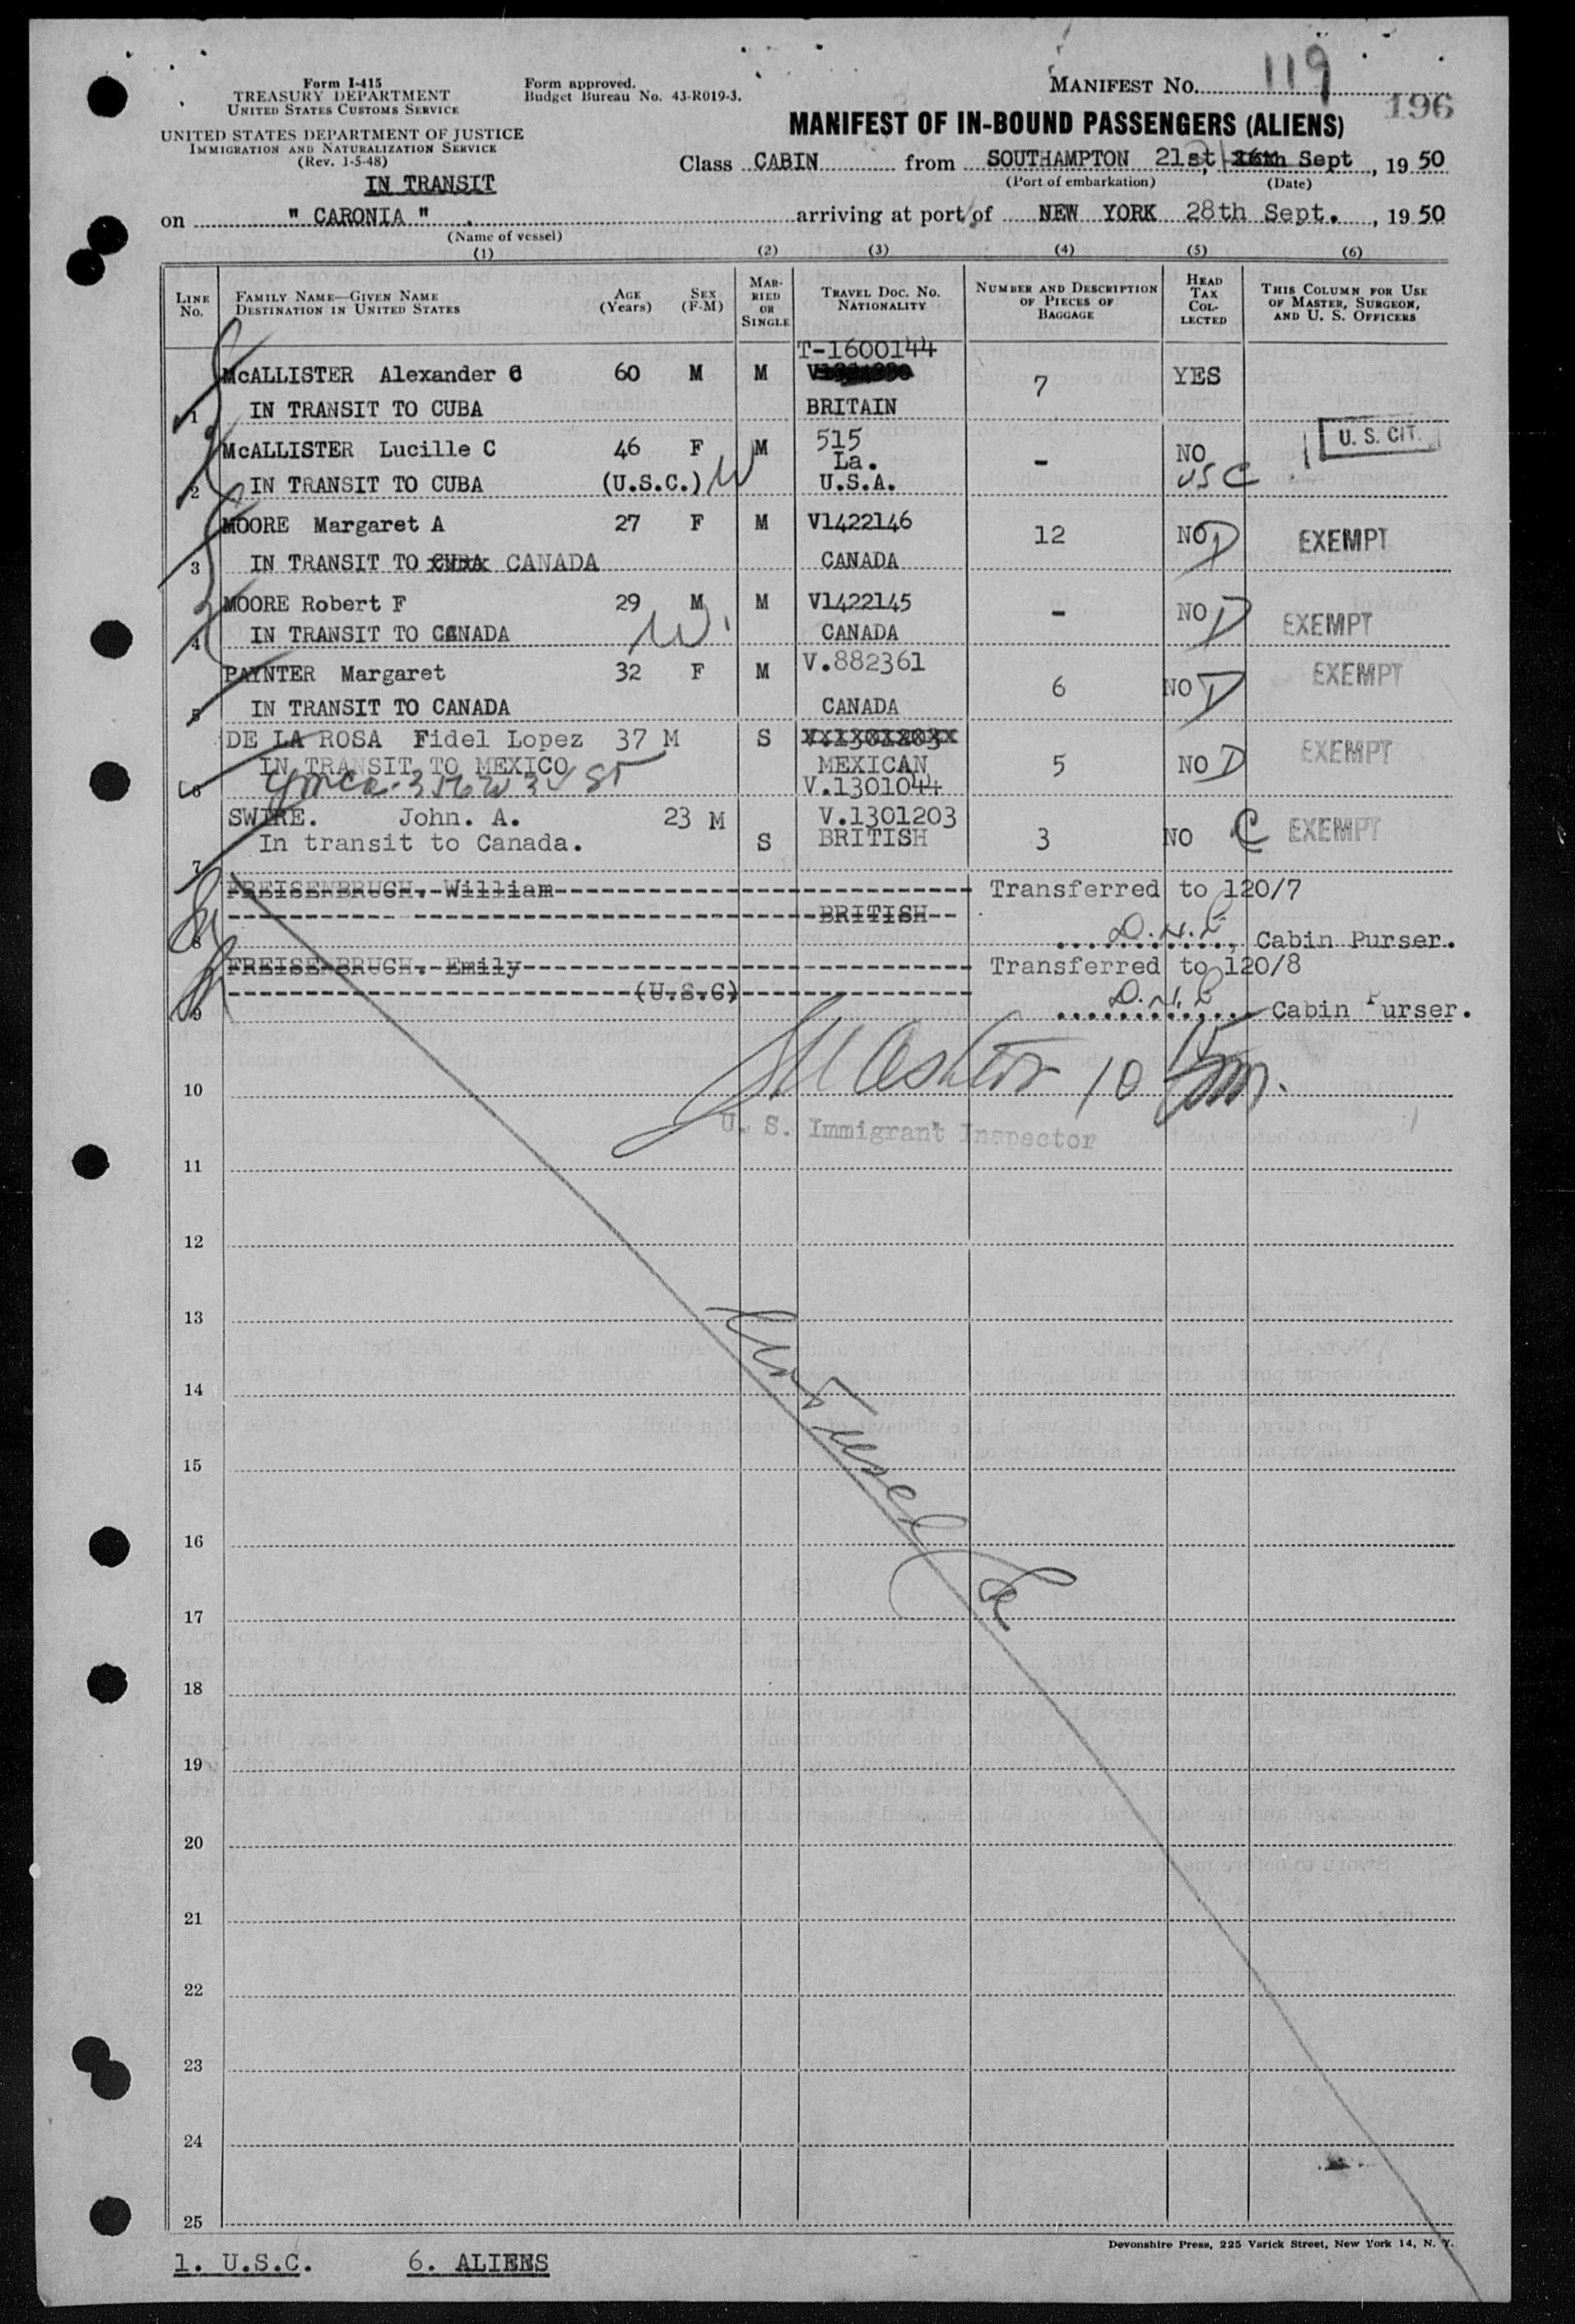 Form I-415
TREASURY DEPARTMENT
UNITED STATES CUSTOMS SERVICE
UNITED STATES DEPARTMENT OF JUSTICE
IMMIGRATION AND NATURALIZATION SERVICE
(Rev. 1-5-48)
IN TRANSIT
Form approved.
Budget Bureau No. 43-R019-3.
MANIFEST NO. 119
196
MANIFEST OF IN-BOUND PASSENGERS (ALIENS)
Class CABIN from SOUTHAMPTON 21st, Sept, 19 50
(Port of embarkation) (Date)
on " CARONIA " arriving at port of NEW YORK 28th Sept., 19 50
(Name of vessel)
(1) (2) (3) (4) (5) (6)
LINE NO. FAMILY NAME—GIVEN NAME DESTINATION IN UNITED STATES AGE (Years) SEX (F-M) MARRIED OR SINGLE TRAVEL DOC. NO. NATIONALITY NUMBER AND DESCRIPTION OF PIECES OF BAGGAGE HEAD TAX COLLECTED THIS COLUMN FOR USE OF MASTER, SURGEON, AND U. S. OFFICERS
T-1600144
McALLISTER Alexander C 60 M M 7 YES
1 IN TRANSIT TO CUBA BRITAIN
McALLISTER Lucille C 46 F M 515 La. - NO U. S. CIT.
2 IN TRANSIT TO CUBA (U.S.C.) W U.S.A. USC
MOORE Margaret A 27 F M V1422146 12 NO D EXEMPT
3 IN TRANSIT TO CUBA CANADA CANADA
MOORE Robert F 29 M M V1422145 - NO D EXEMPT
4 IN TRANSIT TO CANADA W. CANADA
PAYNTER Margaret 32 F M V.882361 6 NO D EXEMPT
5 IN TRANSIT TO CANADA CANADA
DE LA ROSA Fidel Lopez 37 M S V.1301203 5 NO D EXEMPT
IN TRANSIT TO MEXICO MEXICAN
6 ymca-356 W 34 ST V.1301044
SWIRE. John. A. 23 M S V.1301203 3 NO C EXEMPT
In transit to Canada. BRITISH
7
FREISENBRUCH. William Transferred to 120/7
BRITISH
8 Cabin Purser.
FREISENBRUCH. Emily Transferred to 120/8
(U.S.C)
9 Cabin Purser.
10
U. S. Immigrant Inspector
11
12
13
14
15
16
17
18
19
20
21
22
23
24
25
Devonshire Press, 225 Varick Street, New York 14, N. Y.
1. U.S.C. 6. ALIENS